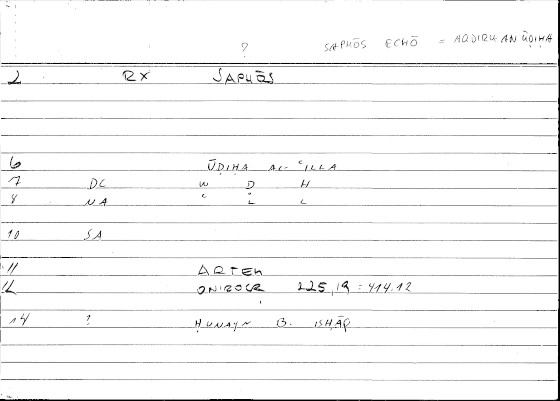 ?
SAPHŌS ECHŌ = AQDIRU AN ŪḌIḤA
2 RX SAPHŌS
6 ŪḌIḤA AL-ʿILLA
7 DC W Ḍ Ḥ
8 NA ʿ L L
10 SA
11 ARTEM
12 ONIROCR 225,19 = 414.12
14 ? ḤUNAYN B. ISḤĀQ